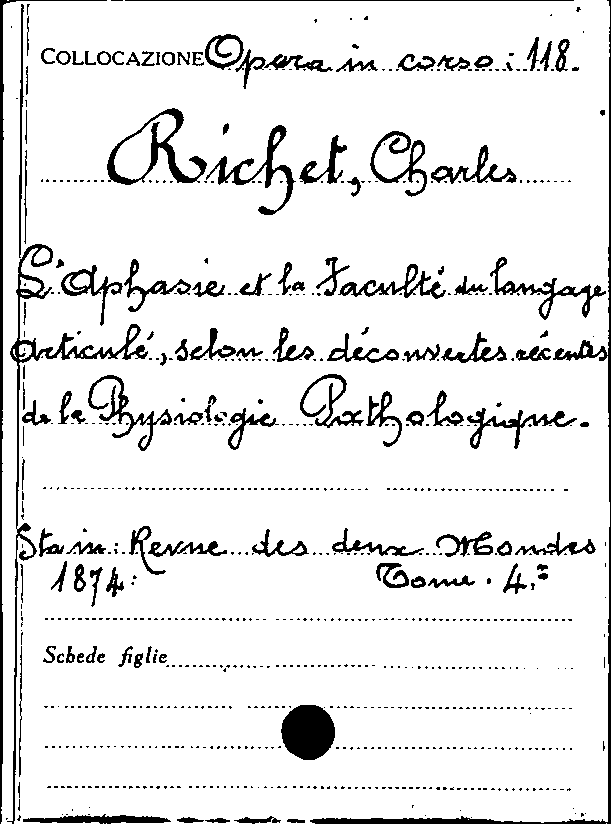 COLLOCAZIONE Opera in corso: 118.
Richet, Charles
L'Aphasie et la Faculté du langage
articulé, selon les découvertes récentes
de la Physiologie Pathologique.
Sta in: Revue des deux Mondes
1874: Tome. 4.º
Schede figlie